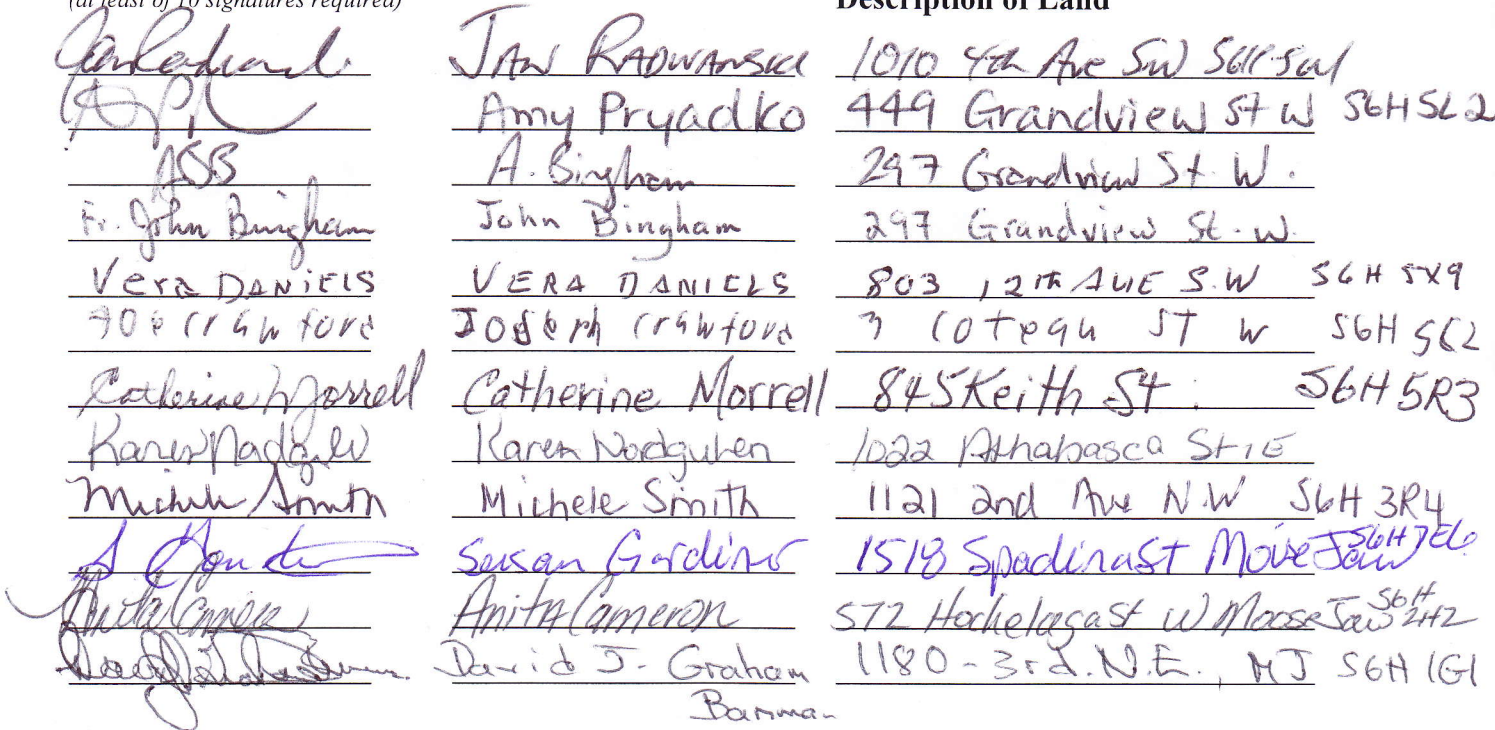 (at least of 10 signatures required) Description of Land
JAN RADWANSKI 1010 4th Ave SW
Amy Pryadko 449 Grandview St W S6H 5L2
ASB A. Bingham 297 Grandview St. W.
Fr. John Bingham John Bingham 297 Grandview St. W.
Vera DANiELS VERA DANIELS 803 12TH AVE S.W S6H 5X9
Joe Crawford Joseph Crawford 3 Coteau ST W S6H 5C2
Catherine Morrell Catherine Morrell 845 Keith St. S6H 5R3
Karen 1022 Athabasca St E
Michele Smith Michele Smith 1121 2nd Ave N.W S6H 3R4
Susan Gardiner 1518 Spadina St Moose Jaw S6H 7E6
Anita Cameron Anita Cameron 572 Hochelaga St W Moose Jaw S6H 2H2
David J. Graham 1180 - 3rd. N.E., MJ S6H 1G1